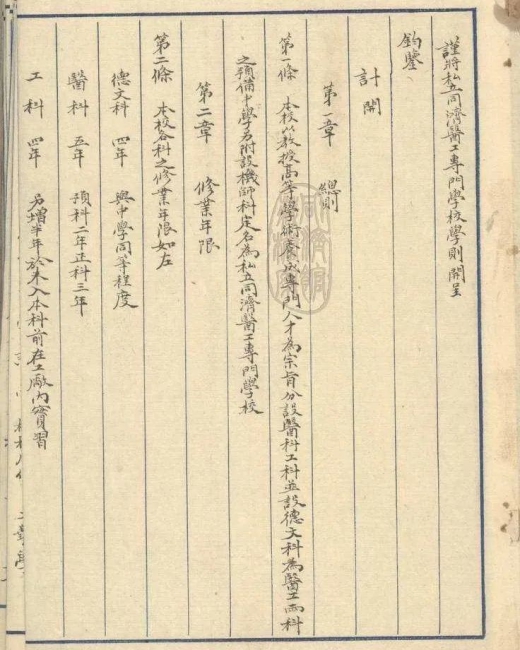 謹將私立同濟醫工專門學校學則開呈
鈞鑒、
計開
第一章 總則
第一條 本校以教授高等學術養成專門人才為宗旨分設醫科工科並設德文科為醫工兩科
之預備中學另附設機師科定名為私立同濟醫工專門學校
第二章 修業年限
第二條 本校各科之修業年限如左
德文科 四年 與中學同等程度
醫科 五年 預科二年正科三年
工科 四年 另增半年於未入本科前在工廠內實習